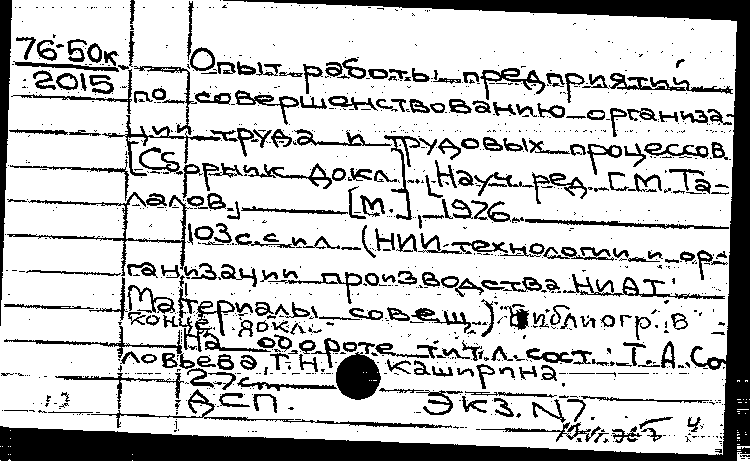 76-50к
2015
Опыт работы предприятий
по совершенствованию организа-
ции труда и трудовых процессов.
[Сборник докл.] [Науч. ред. Г.М. Та-
лалов.] [М.], 1976.
103 с. с ил. (НИИ технологии и ор-
ганизации производства НИАТ.
Материалы совещ.) Библиогр. в
конце докл.
На обороте тит. л. сост.: Т.А. Со-
ловьева, Г.Н. Каширина.
27 см
ДСП. Экз. N7.